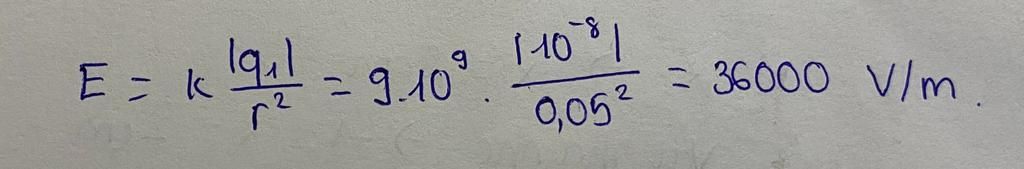 E = k |q₁|/r² = 9.10⁹ . |10⁻⁸|/0,05² = 36000 V/m.